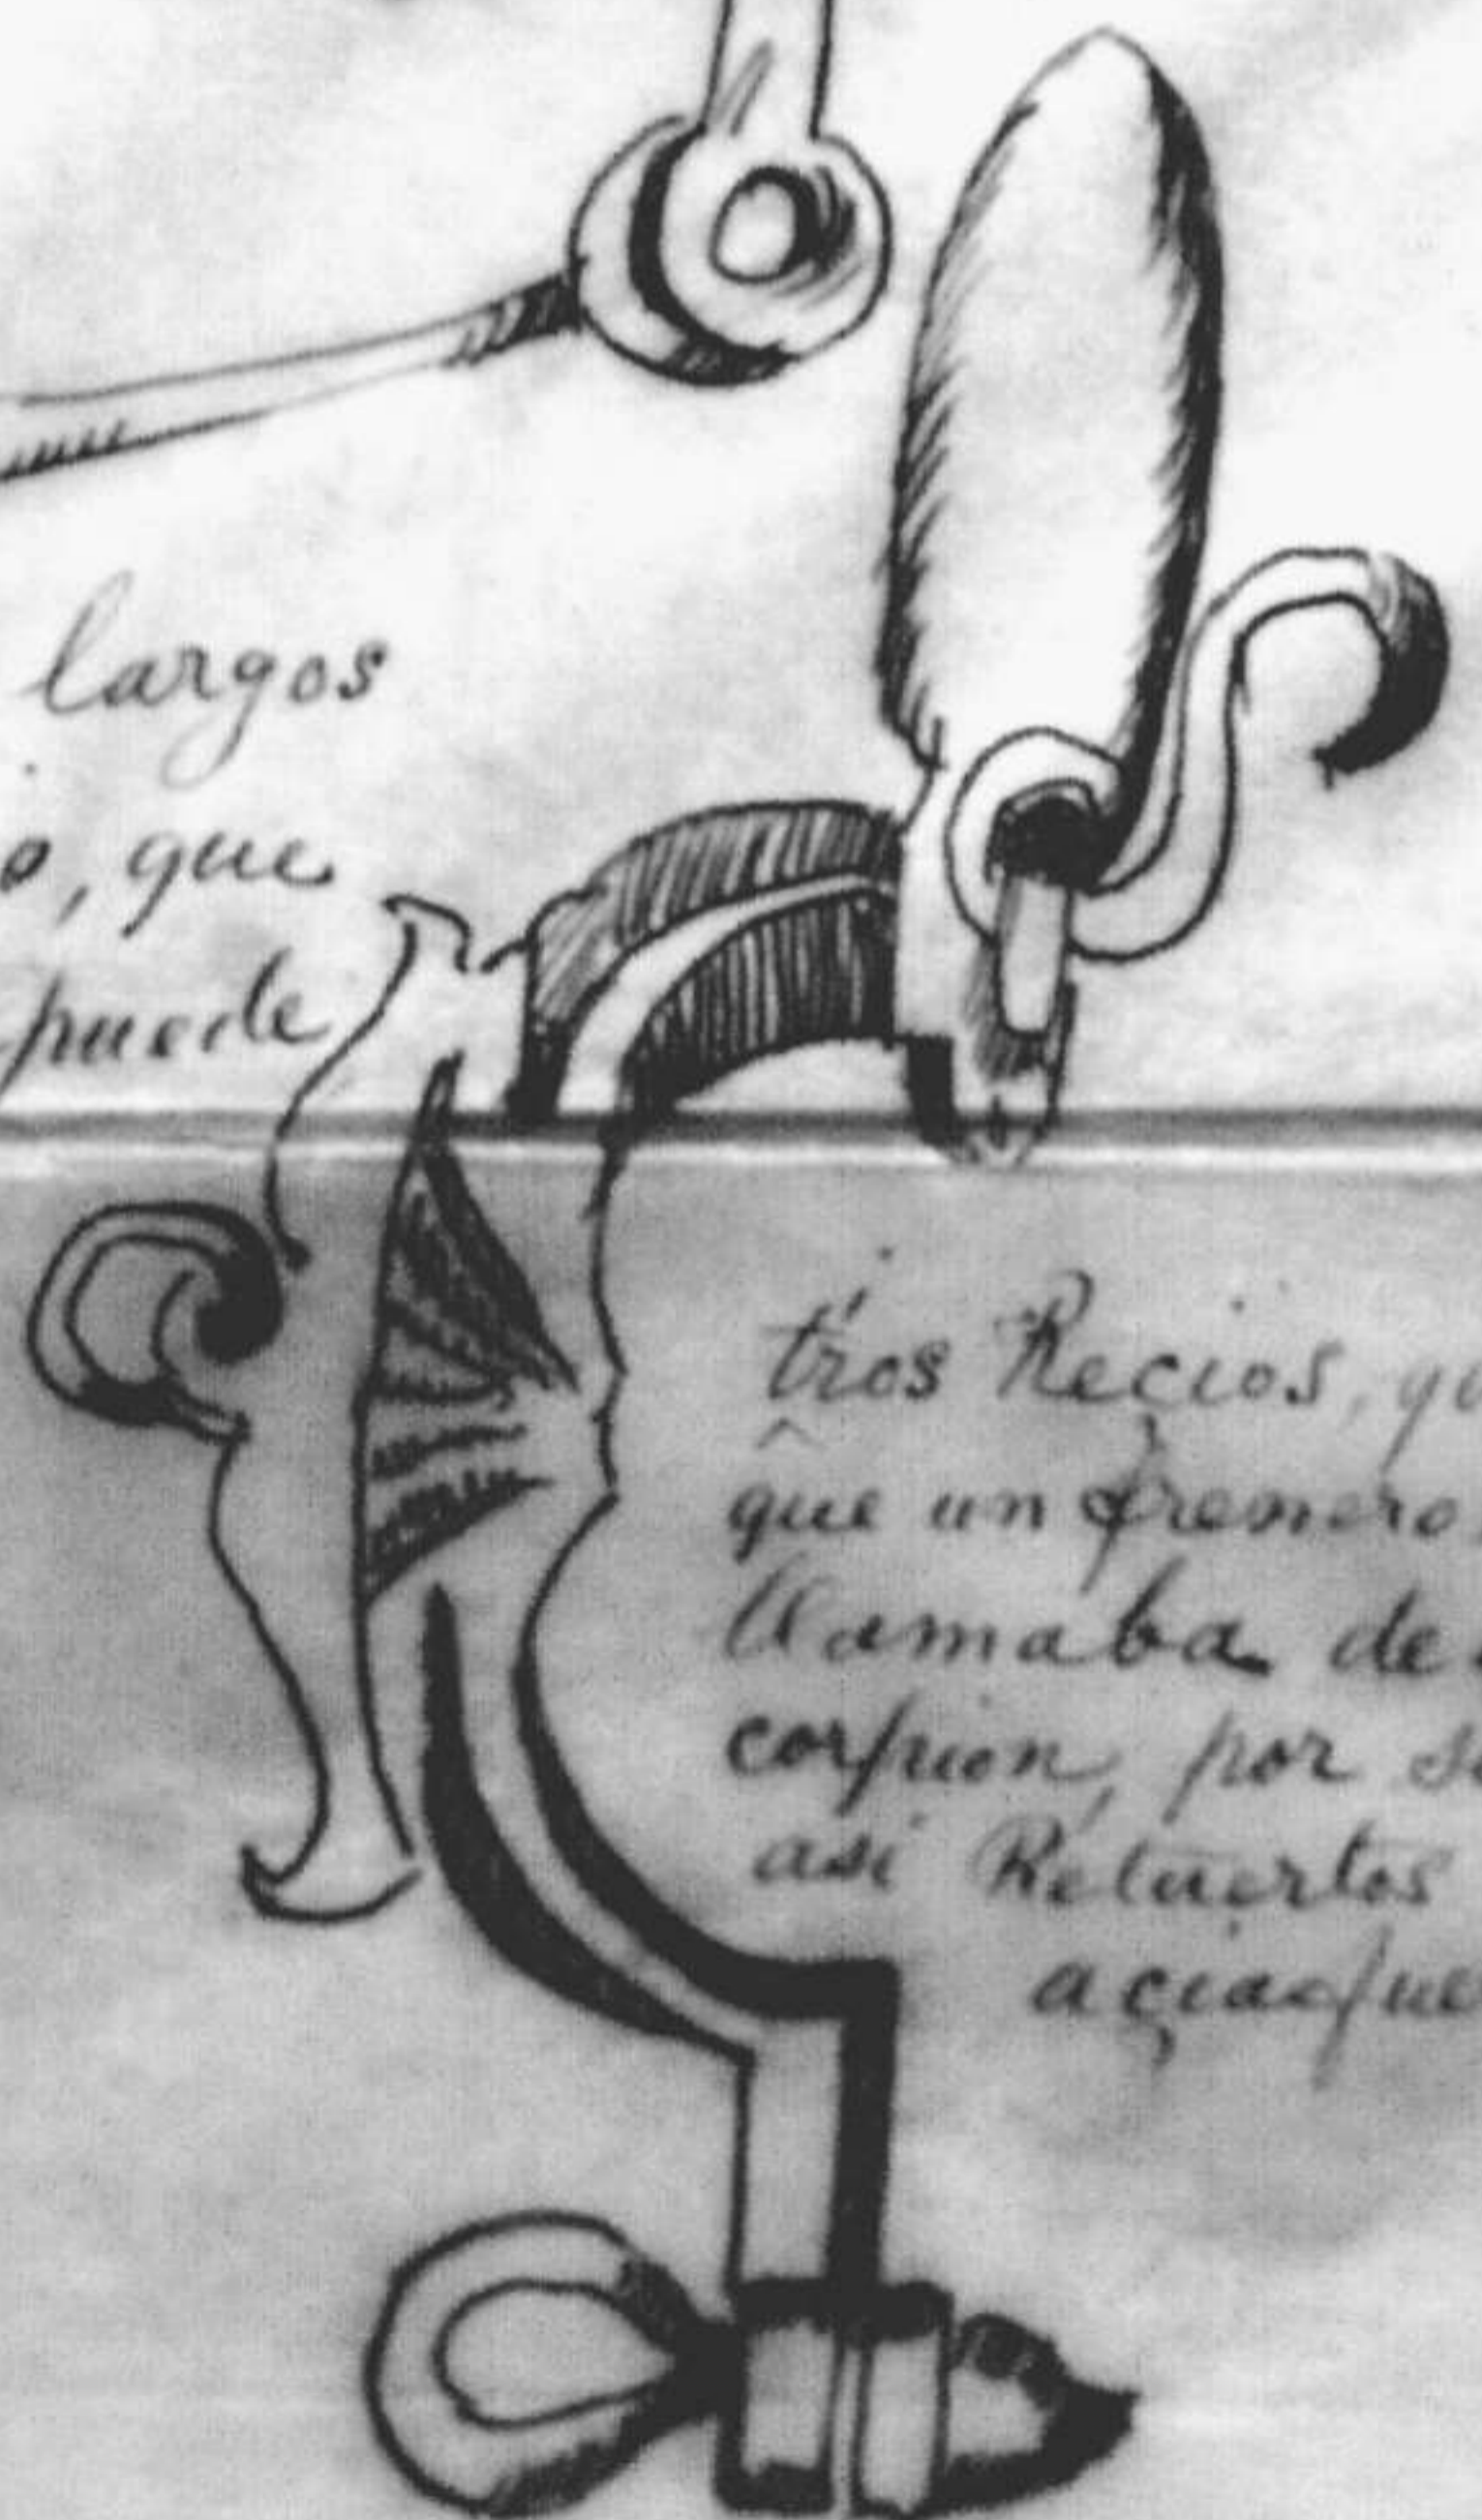 largos
o, que
puede
tros Reçios, q
que un frenero
llamaba de
corpion, por s
asi Retuertos
açia